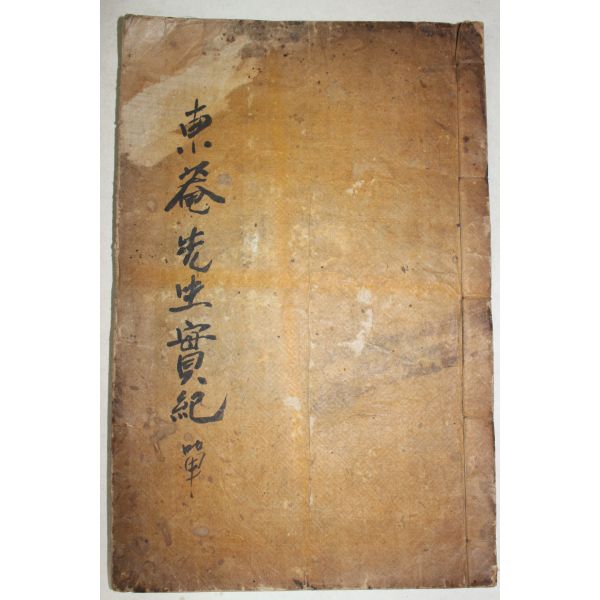 東菴先生實紀 單